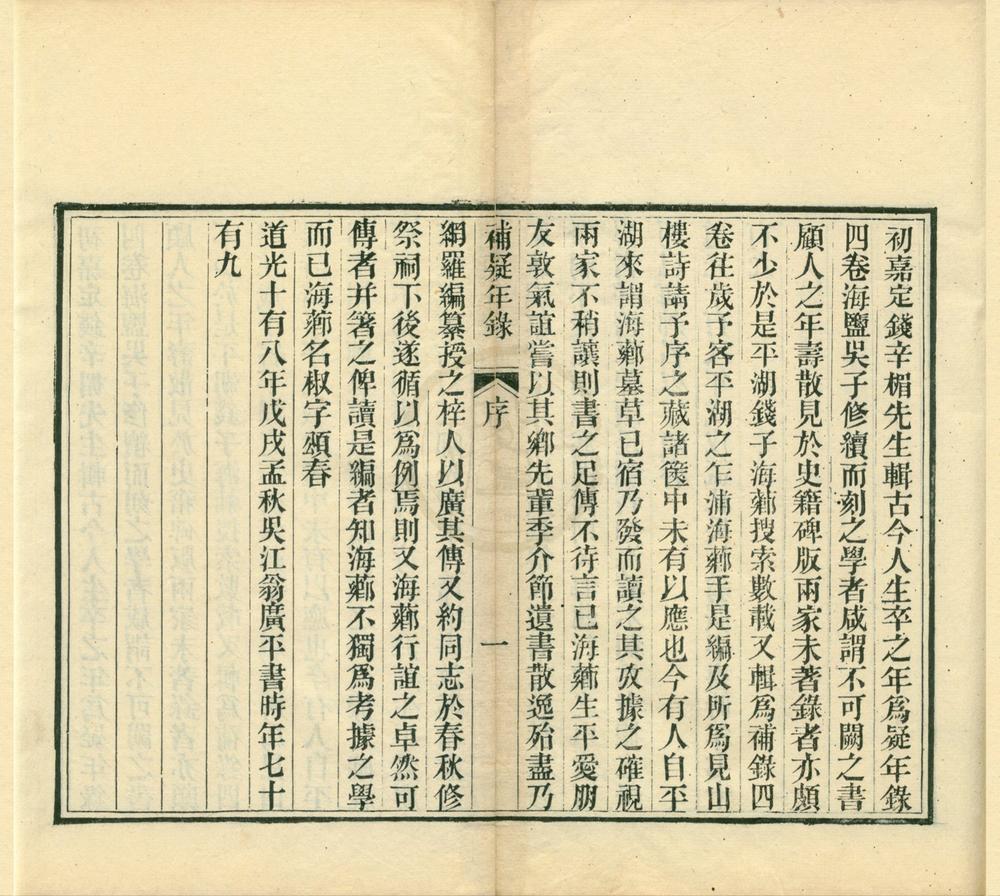 初嘉定錢辛楣先生輯古今人生卒之年爲疑年錄
四卷海鹽吳子修續而刻之學者咸謂不可闕之書
顧人之年壽散見於史籍碑版兩家未著錄者亦頗
不少於是平湖錢子海薌搜索數載又輯爲補錄四
卷往歲予客平湖之乍浦海薌手是編及所爲見山
樓詩請予序之藏諸篋中未有以應也今有人自平
湖來謂海薌墓草已宿乃發而讀之其攷據之確視
兩家不稍讓則書之足傳不待言已海薌生平愛朋
友敦氣誼嘗以其鄉先輩季介節遺書散逸殆盡乃
補疑年錄 序 一
網羅編纂授之梓人以廣其傳又約同志於春秋修
祭祠下後遂循以爲例焉則又海薌行誼之卓然可
傳者并箸之俾讀是編者知海薌不獨爲考據之學
而已海薌名椒字頮春
道光十有八年戊戌孟秋吳江翁廣平書時年七十
有九